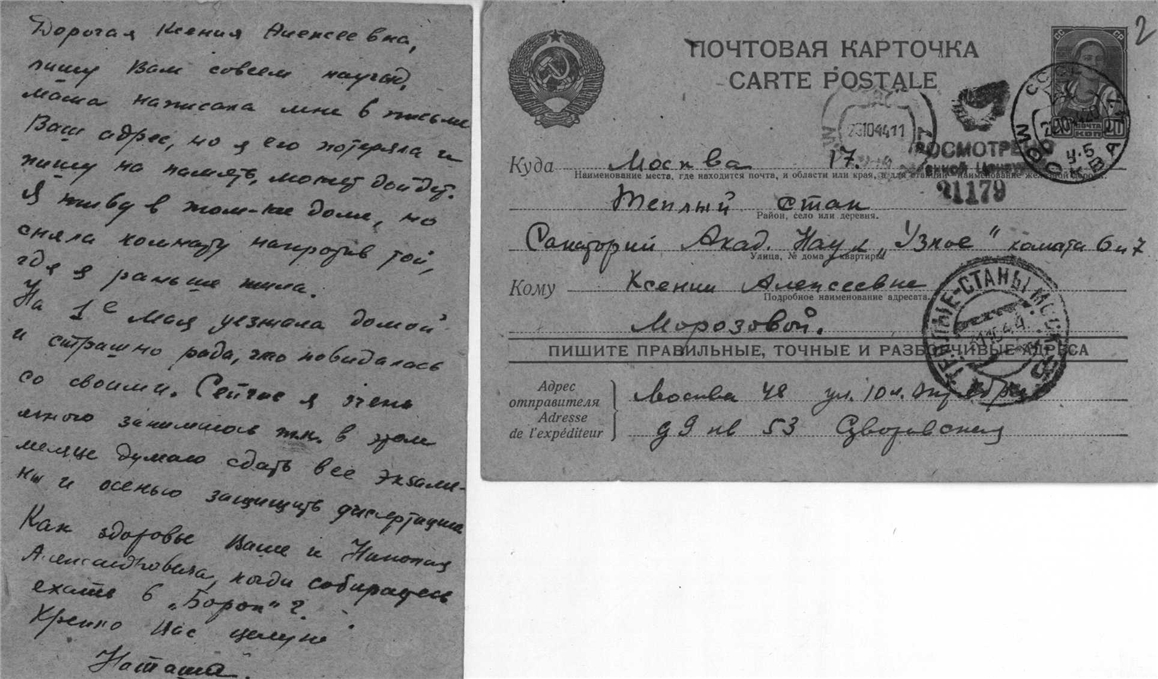 Дорогая Ксения Алексеевна,
пишу Вам совсем наугад,
Маша написала мне в письме
Ваш адрес, но я его потеряла и
пишу на память, может дойдет.
Я живу в том-же доме, но
сняла комнату напротив той,
где я раньше жила.
На 1е Мая уезжала домой
и страшно рада, что повидалась
со своими. Сейчас я очень
много занимаюсь т.к. в этом
месяце думаю сдать все экзаме-
ны и осенью защищать диссертацию
Как здоровье Ваше и Николая
Александровича, когда собираетесь
ехать в „Борок"?
Крепко Вас целую
Наташа.
2
ПОЧТОВАЯ КАРТОЧКА
CARTE POSTALE
СССР
МОСКВА
ПОЧТА
20 КОП
ПРОСМОТРЕНО
Военной Цензурой
21179
Куда Москва 17.
Наименование места, где находится почта, и области или края, а для станции наименование железной дороги.
Теплый стан
Район, село или деревня.
Санаторий Акад. Наук „Узкое" комата 6 и 7
Улица, № дома и квартиры
Кому Ксении Алексеевне
Подробное наименование адресата.
Морозовой.
ТЕПЛЫЕ-СТАНЫ МОСК.
ПИШИТЕ ПРАВИЛЬНЫЕ, ТОЧНЫЕ И РАЗБОРЧИВЫЕ АДРЕСА
Адрес
отправителя
Adresse
de l'expéditeur
Москва 48 ул.
д 9 кв 53